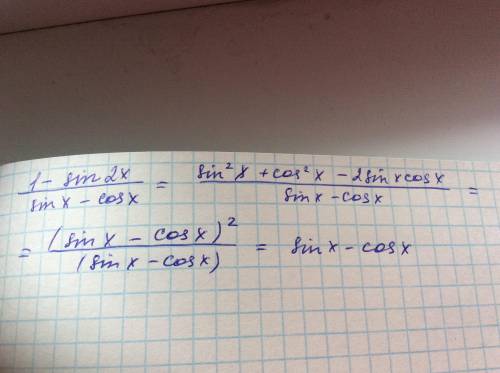 (1 - sin 2x)/(sin x - cos x) = (sin² x + cos² x - 2 sin x cos x)/(sin x - cos x) =
= (sin x - cos x)²/(sin x - cos x) = sin x - cos x